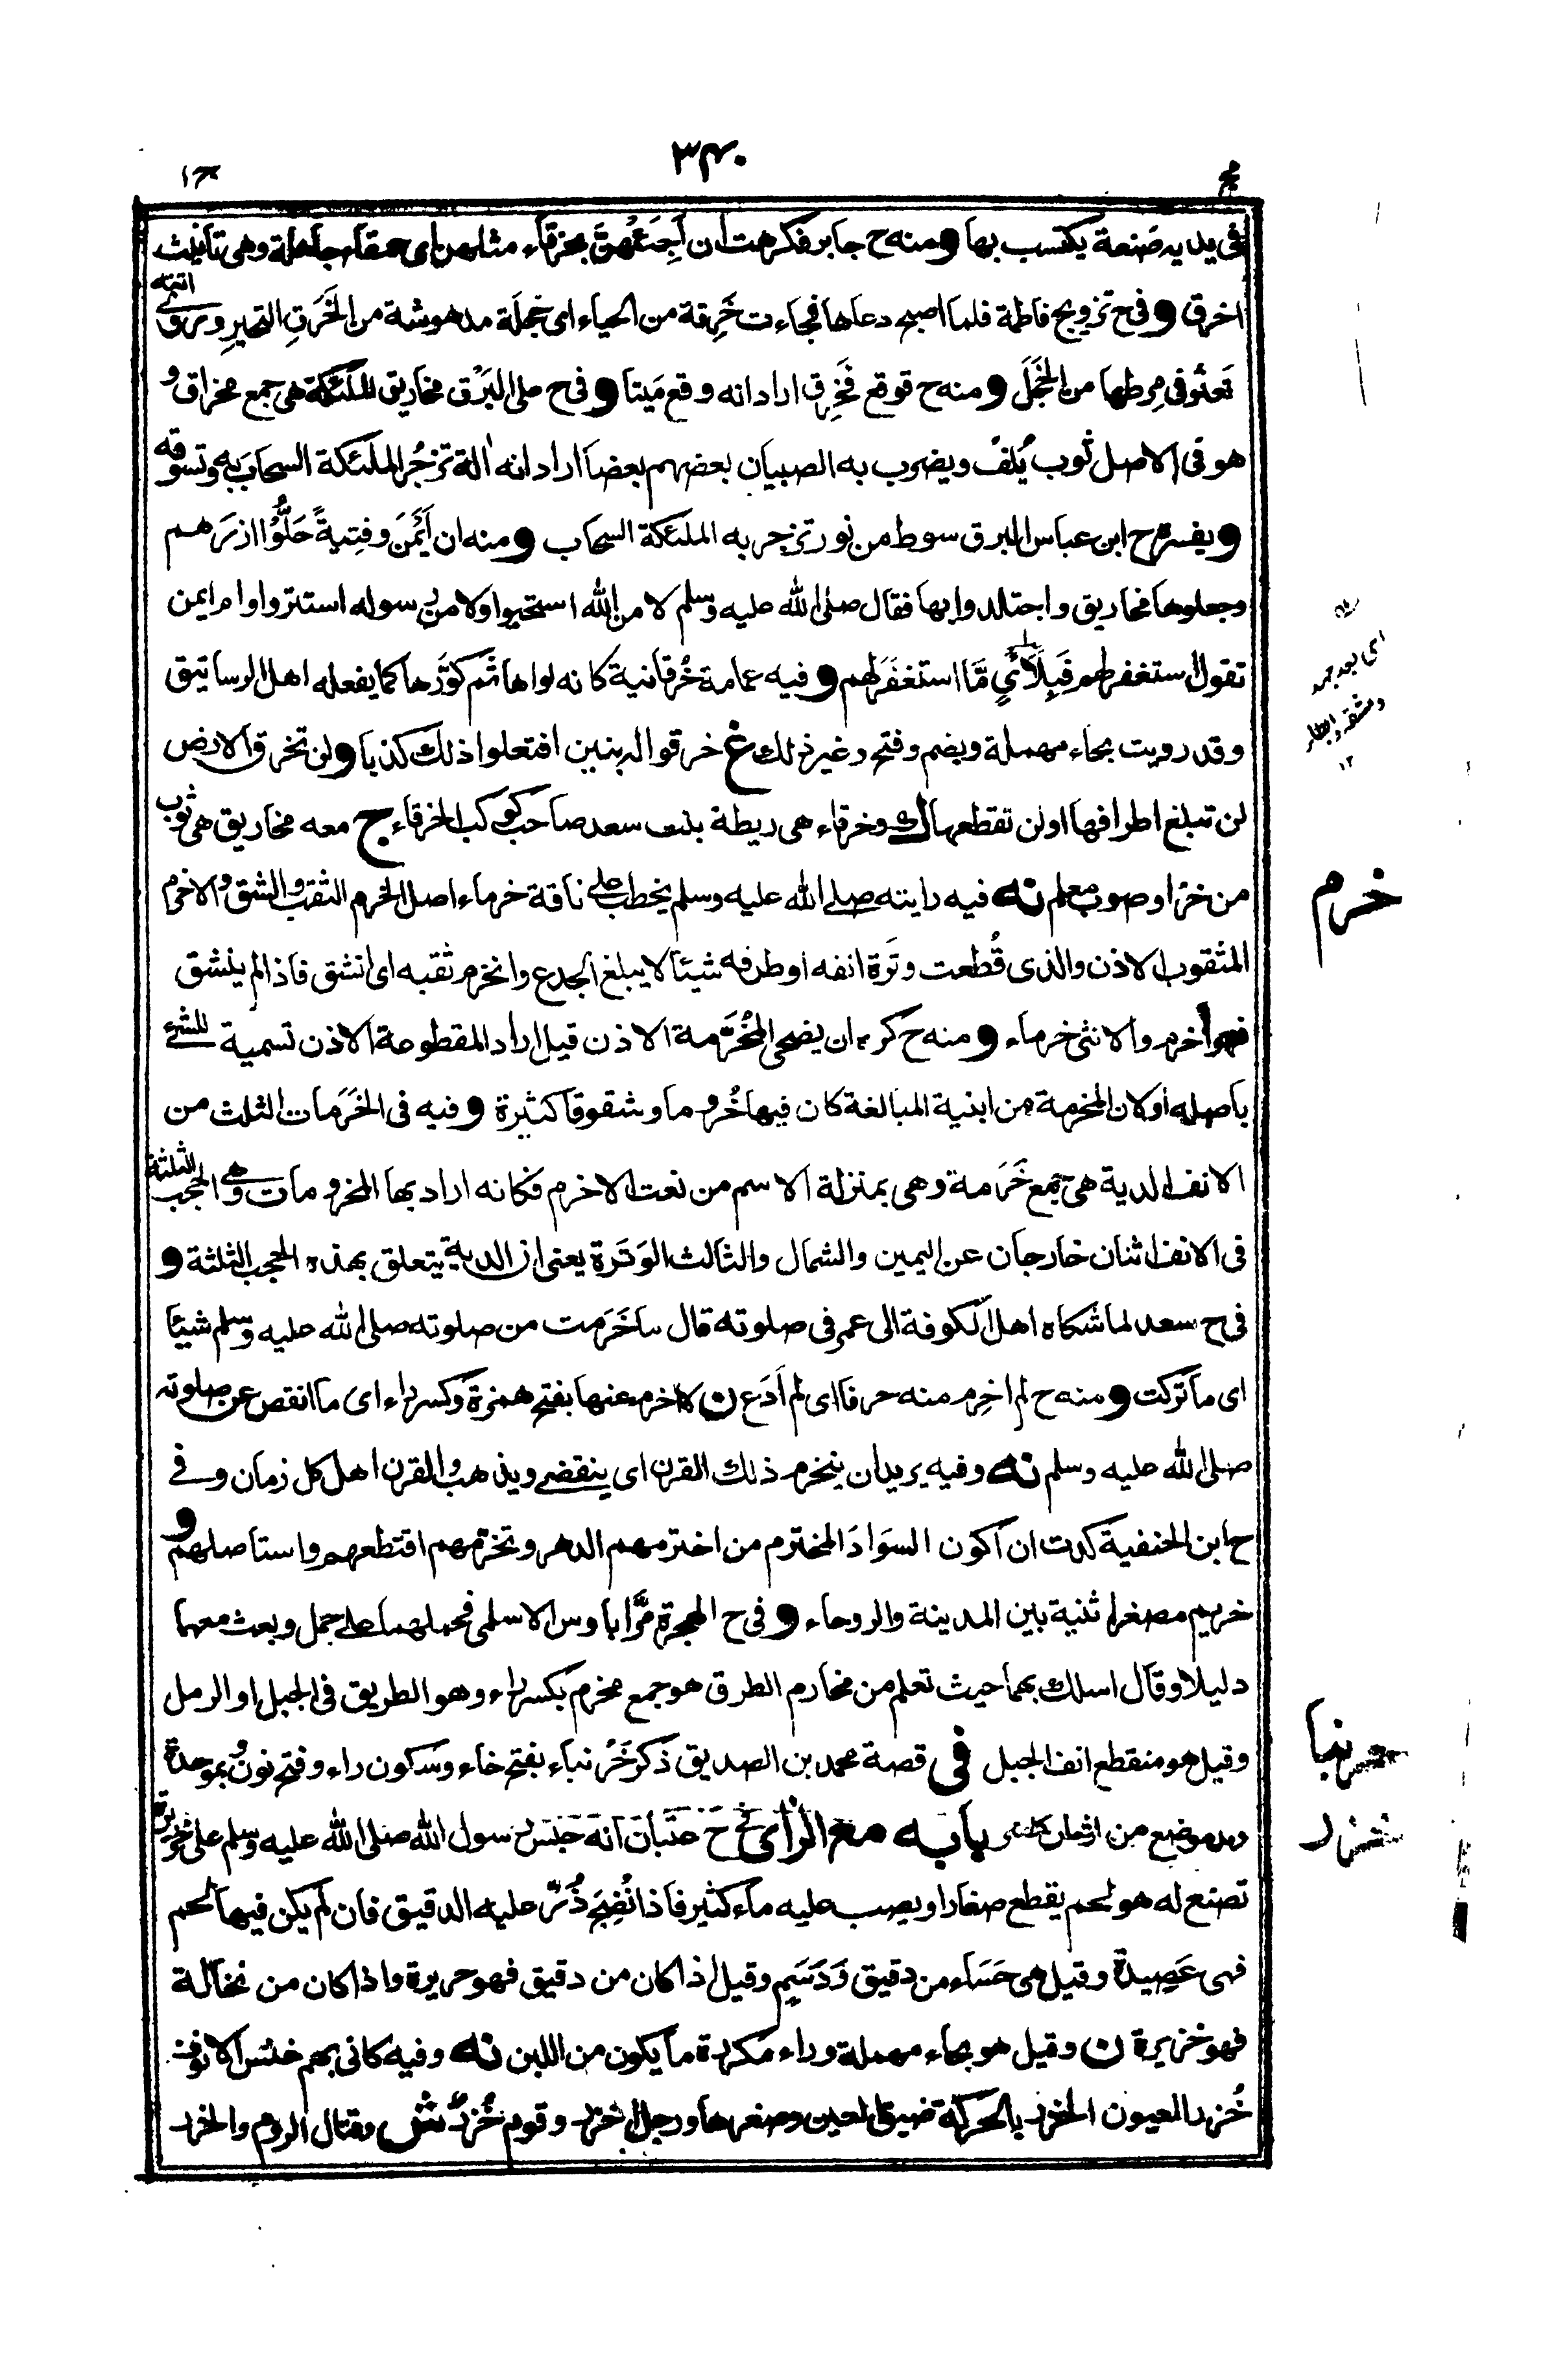 ٣٤٠
مج
١ج
فى يديه صَنعة يكتسب بها ومنه ح جابر فكرهت ان اجيئهن بخرقاء مثلهن اى حمقاء جاهلة وهى تانيث
اخرق وفى ح تزويج فاطمة فلما اصبح دعاها فجاءت خَرِقة من الحياء اى خجلة مدهوشة من الخَرَقِ التحيرِ وروى اتته
تَعثر فى مِرطها من الخَجَل ومنه ح فوقع فَخَرِق اراد انه وقع مَيتا وفى ح على البَرْق مخاريق الملئكة هى جمع مخراق و
هو فى الاصل ثوب يُلَف ويضرب به الصبيان بعضهم بعضا اراد انه الة تزجُر الملئكة السحابَ به وتسوقه
ويفسره ح ابن عباس البرق سوط من نور تزجر به الملئكة السحاب ومنه ان اَيْمَنَ وفِتيةً حَلُّوا ازرهم
وجعلوها مخاريق واجتلدوا بها فقال صلى الله عليه وسلم لا من الله استحيوا ولا من رسوله استتروا وام ايمن
تقول استغفر لهم فَبِلَأْىٍ مَّا استغفَرَ لهم وفيه عمامة خُرقانية كانه لواها ثم كَوَّرها كما يفعله اهل الرساتيق
وقد رويت بحاء مهملة وبضم وفتح وغير ذلك غ خرقوا له بنين افتعلوا ذلك كذبا ولن تخرق الارض
لن تبلغ اطرافها او لن تقطعها ك وخرقاء هى ريطة بنت سعد صاحب كوكب الخرقاء ج معه مخاريق هى ثوب
من خز او صوب معلم نه فيه رايته صلى الله عليه وسلم يخطب على ناقة خرماء اصل الخرم الثقب والشق والاخرم
المثقوب الاذن والذى قُطعت وتَرة انفه او طرفه شيئا لا يبلغ الجدع وانخرم ثقبه اى انشق فاذا لم ينشق
فهو اخرم والانثى خرماء ومنه ح كره ان يضحى المُخَرَّمة الاذن قيل اراد المقطوعة الاذن تسمية للشئ
باصله او لان المخرمة من ابنية المبالغة كان فيها خُروما وشقوقا كثيرة وفيه فى الخَرَمات الثلث من
الانف الدية هى جمع خَرَمة وهى بمنزلة الاسم من نعت الاخرم فكانه اراد بها المخرومات وهى الحجب الثلثة
فى الانف اثنان خارجان عن اليمين والشمال والثالث الوَتَرة يعنى ان الدية يتعلق بهذه الحجب الثلثة و
فى ح سعد لما شكاه اهل الكوفة الى عمر فى صلوته قال ما خَرَمت من صلوته صلى الله عليه وسلم شيئا
اى ما تركت ومنه ح لم اخرِم منه حرفا اى لم اَدَع ن لا اخرم عنها بفتح همزة وكسر راء اى ما انقص عن صلوته
صلى الله عليه وسلم نه وفيه يريد ان ينخرم ذلك القرن اى ينقضى ويذهب والقرن اهل كل زمان وفى
ح ابن الحنفية كدت ان اكون السوادَ المخترم من اخترمهم الدهر وتخرمهم اقتطعهم واستاصلهم و
خريم مصغرا ثنية بين المدينة والروحاء وفى ح الهجرة مَرَّا باوس الاسلمى فحملهما على جمل وبعث معهما
دليلا وقال اسلك بهما حيث تعلم من مخارم الطرق هو جمع مخرم بكسر راء وهو الطريق فى الجبل او الرمل
وقيل هو منقطع انف الجبل فى قصة محمد بن الصديق ذكر خَرْ نباء بفتح خاء وسكون راء وفتح نون وبموحدة
ومد موضع من باب ه مع الزاى خ ح عتبان انه حبس رسول الله صلى الله عليه وسلم على خزيرة
تصنع له هو لحم يقطع صغارا ويصب عليه ماء كثير فاذا نُضِجَ ذُرَّ عليه الدقيق فان لم يكن فيها لحم
فهى عَصِيدة وقيل هى حَسَاء من دقيق وَدَسَمٍ وقيل اذا كان من دقيق فهو حريرة واذا كان من نخالة
فهو خزيرة ن وقيل هو بحاء مهملة وراء مكررة ما يكون من اللبن نه وفيه كانى بهم خنس الانوف
خُزر العيون الخزر بالحركة ضيق العين وصغرها ورجل اخزر وقوم خُزرٌ ش وقتال الروم والخزر
اى بعد جهد
ومشقة وابطاء
١٢
خرم
خرنبا
خزر